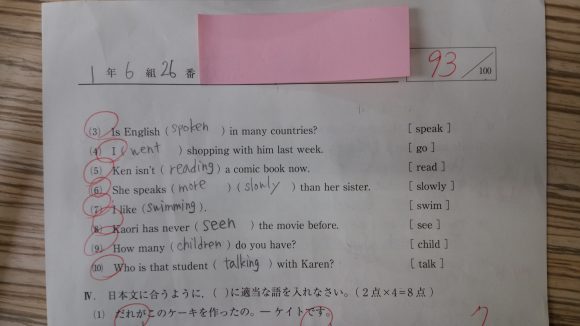 1年6組26番
93/100
(3) Is English (spoken) in many countries? [ speak ]
(4) I (went) shopping with him last week. [ go ]
(5) Ken isn't (reading) a comic book now. [ read ]
(6) She speaks (more) (slowly) than her sister. [ slowly ]
(7) I like (swimming). [ swim ]
(8) Kaori has never (seen) the movie before. [ see ]
(9) How many (children) do you have? [ child ]
(10) Who is that student (talking) with Karen? [ talk ]
Ⅳ. 日本文に合うように，( )に適当な語を入れなさい。(2点×4=8点)
(1) だれがこのケーキを作ったの。ーケイトです。